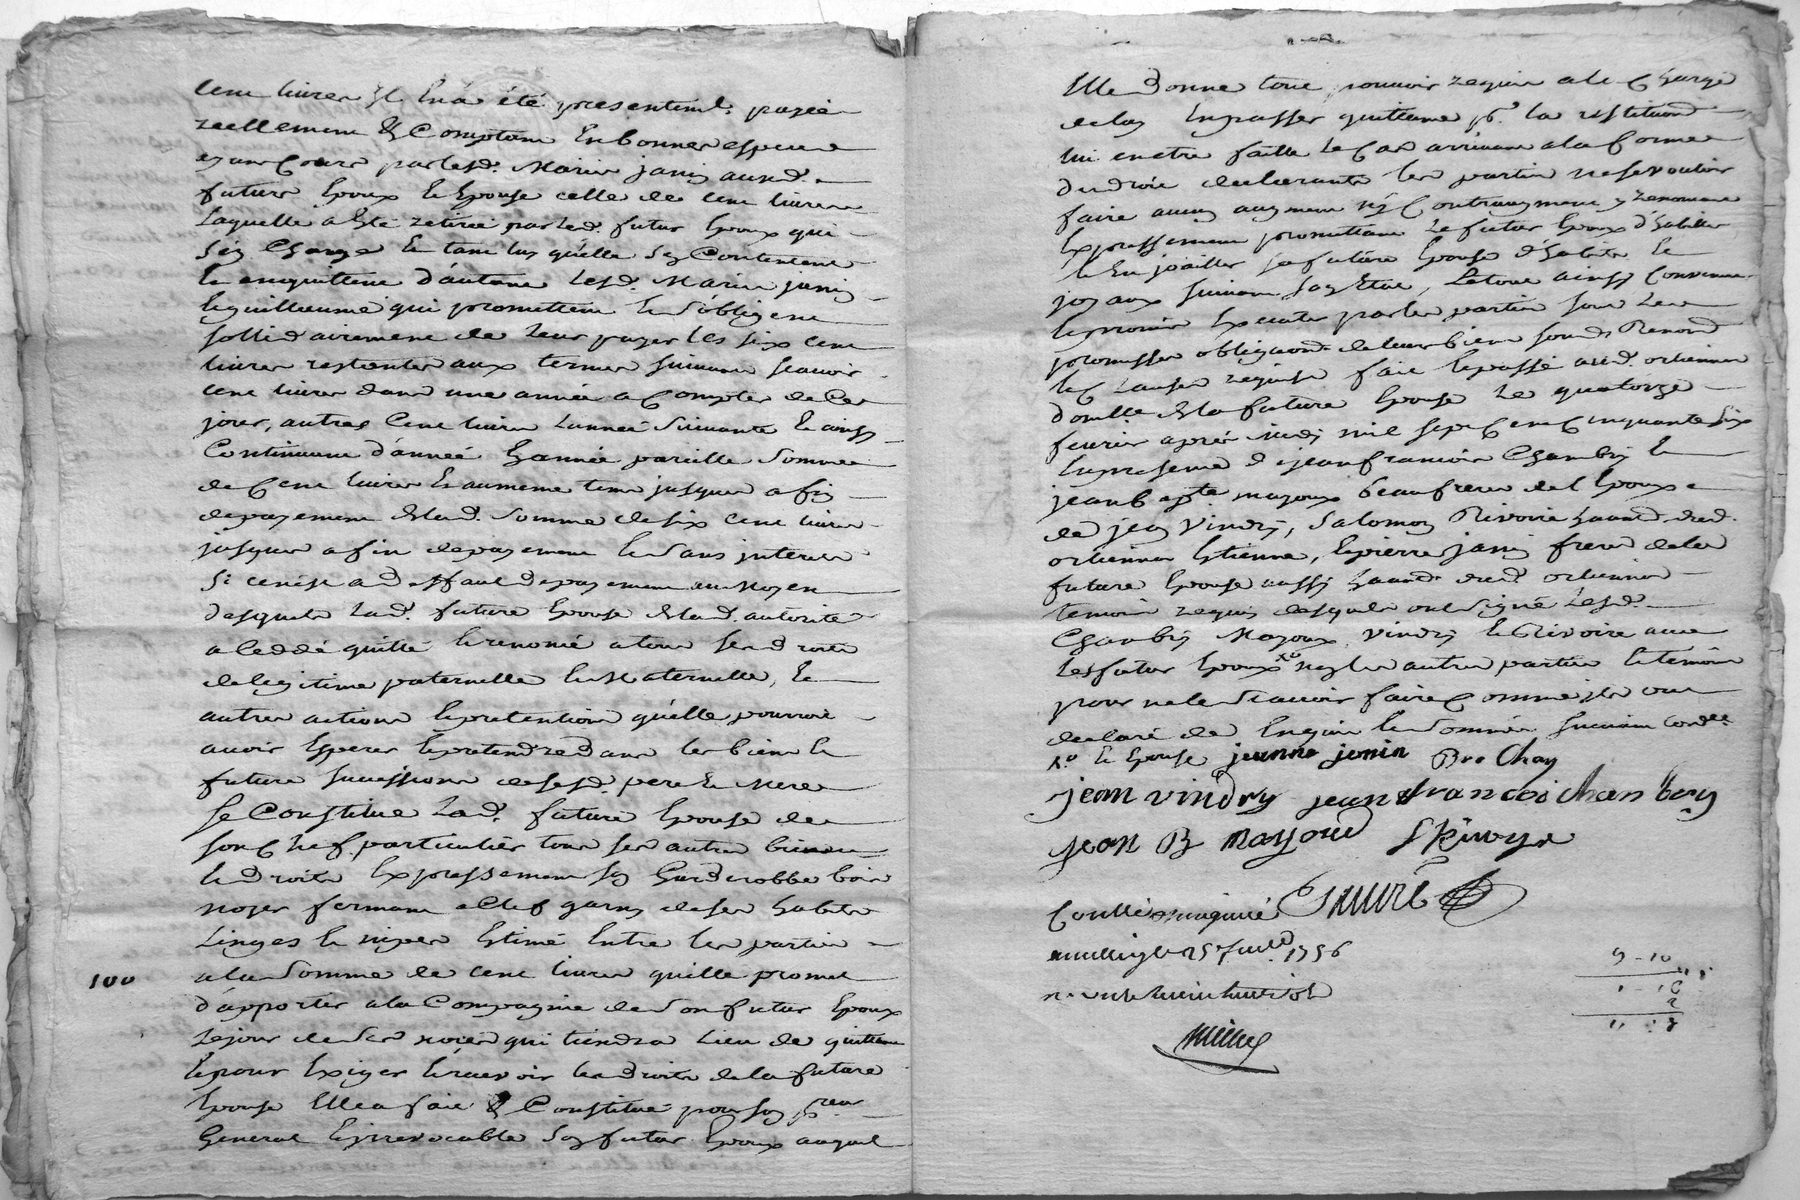 cent livres Il En a été presentem.t payée
reellement Et Comptant En bonnes especes
ayant Cours par lesd. Mariés janin auxd.
futurs Epoux Et Epouse celle de cent livres
Laquelle a Eté retirée par led. futur Epoux qui
s'en Charge Et tant luy qu'elle s'en Contentent
Et en quittent d'autant lesd. Mariés janin
Et guillieaume qui promettent Et s'obligent
sollidairement de leur payer les six cent
livres restantes aux termes suivants scavoir
cent livres dans une année a Compter de Ce
jour, autres Cent livres L'année Suivante Et ainsy
Continuant d'année En année pareille Somme
de Cent livres Et au meme tems jusques a fin
de payement de lad. Somme de six cent livres
jusques a fin de payement Et Sans jnterets
Si ce n'est a deffaut de payement au Moyen
desquels Lad. future Epouse de lad. autorité
a Ceddé quitté Et renoncé a tous ses droits
de legitime paternelle Et Maternelle, Et
autres actions Et pretentions qu'elle pourroit
avoir Esperer Et pretendre dans les biens Et
future succession de sesd. pere Et Mere
Se Constitue Lad. future Epouse de
son Chef particulier tous ses autres biens
Et droits Expressement sa Garderobbe bois
noyer fermant a Clef garny de ses habits
Linges Et nipes Estimé Entre les parties
100 a la Somme de cent livres qu'elle promet
d'apporter a la Compagnie de Son futur Epoux
Le jour de Ses noces qui tiendra Lieu de quittance
Et pour Exiger Et recevoir les droits de la future
Epouse Elle a fait & Constitué pour son p.reur
General Et jrrevocable Son futur Epoux auquel
Elle donne tout pouvoir requis a la Charge
de luy En passer quittance p.r la restitution
lui en etre faitte le Cas arrivant a la forme
du droit declarants les parties ne se vouloir
faire aucun augment ny Contraugment y renoncant
Expressement promettant Le futur Epoux d'habiller
Et En joailler sa future Epouse d'habits Et
joyaux suivant son Etat, Le tout ainsy Convenu
Et promis Executer par les parties sous Leurs
promesses obligaons de leurs biens soums Renons
Et Clauses requises fait Et passé aud. orlienas
domille de la future Epouse Le quatorze
fevrier aprés midi mil sept Cent Cinquante six
En presence de jean francois Chambry Et
jean bapte mayoux beaufrere de l'Epoux
de jean Vindry, Salomon Rivoire habnd. dud.
orlienas Etienne, Et pierre janin freres de la
future Epouse aussy habnds dud. orlienas
temoins requis desquels ont Signé Lesd.
Chambry Mayoux Vindry Et Rivoire avec
Les futur Epoux non les autres parties Et temoins
pour ne le Scavoir faire Comme ils ont
declaré de Enquis Et Sommés suivant lordce
Et Epouse jeanne jonin Bro Chay
jean vindry jean francoi chanbry
jean B mayoud S Rivoyre
Conllé
1756
9 - 10